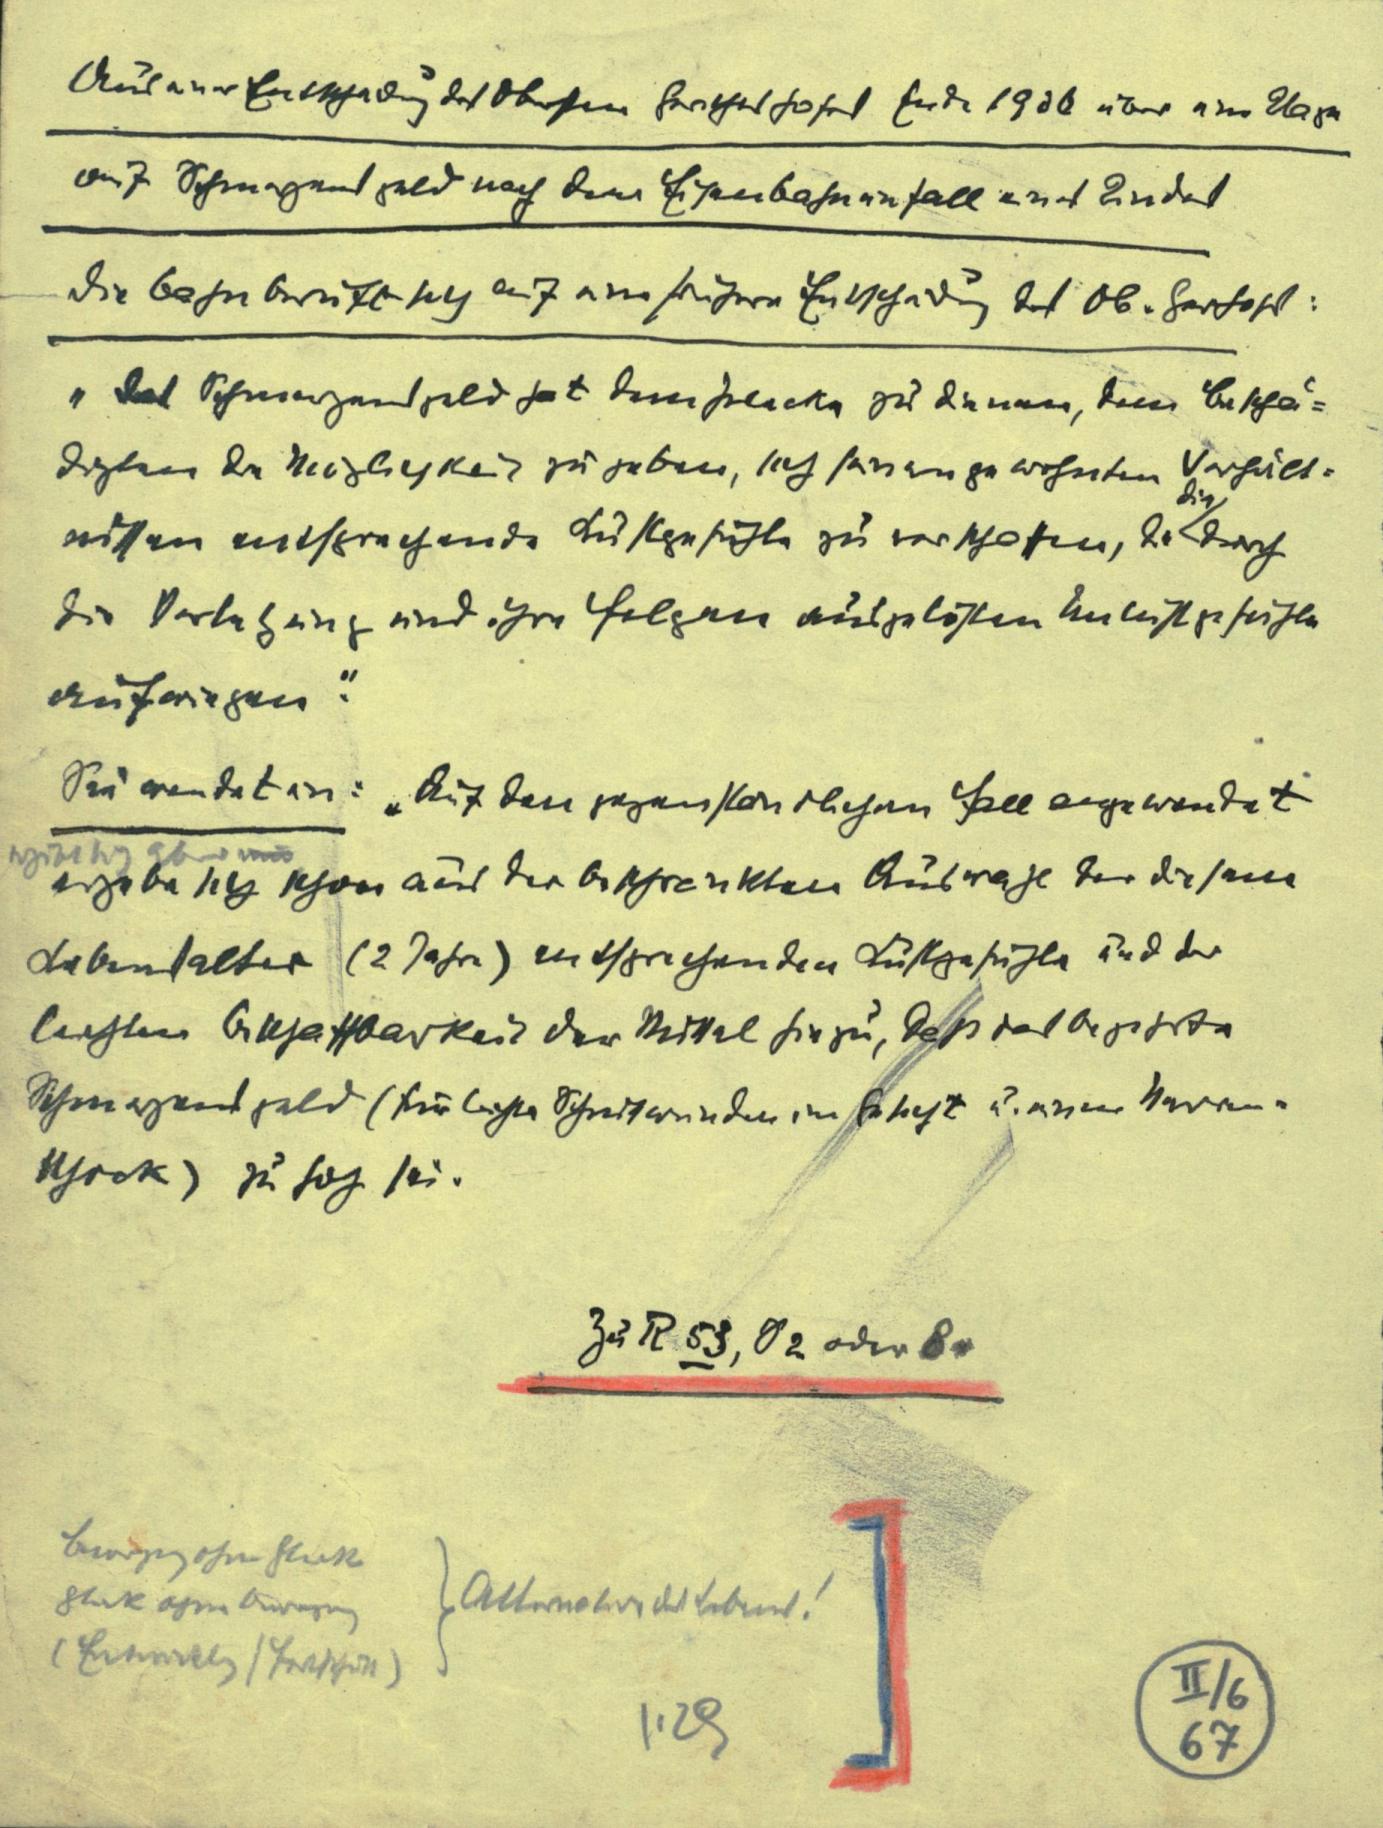 Aus einer Entscheidung des Obersten Gerichtshofes Ende 1936 über eine Klage
auf Schmerzensgeld nach dem Eisenbahnunfall eines Kindes
Die Bahn beruft sich auf eine frühere Entscheidung des Ob. Gerhofs:
„Das Schmerzensgeld hat dem Zwecke zu dienen, dem Beschä=
digten die Möglichkeit zu geben, sich seinen gewohnten Verhält=
nissen entsprechende Lustgefühle zu verschaffen, die die durch
die Verletzung und ihre Folgen ausgelösten Unlustgefühle
aufwiegen".
Sie wendet ein: „Auf den gegenständlichen Fall angewendet
ergibt sich aber
ergebe sich schon aus der beschränkten Auswahl der diesem
Lebensalter (2 Jahre) entsprechenden Lustgefühle und der
leichten Beschaffbarkeit der Mittel hiezu, daß das begehrte
Schmerzensgeld (für leichte Schnittwunden im Gesicht u. einen Nerven=
schock) zu hoch sei.
Zu R 53, 2 oder 8
Bewegung ohne Glück
Glück ohne Bewegung
(Entwicklg / Fortschritt)
Alternative des Lebens!
1:29
II/6
67